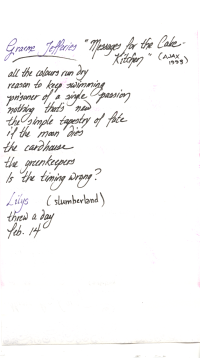 Graeme Jefferies "Messages for the Cake-
Kitchen" (AJAX
1993)
all the colours run dry
reason to keep swimming
prisoner of a single passion
nothing that's new
the simple tapestry of fate
if the moon dies
the cardhouse
the greenkeepers
Is the timing wrong?
Lilys (slumberland)
threw a day
Feb. 14